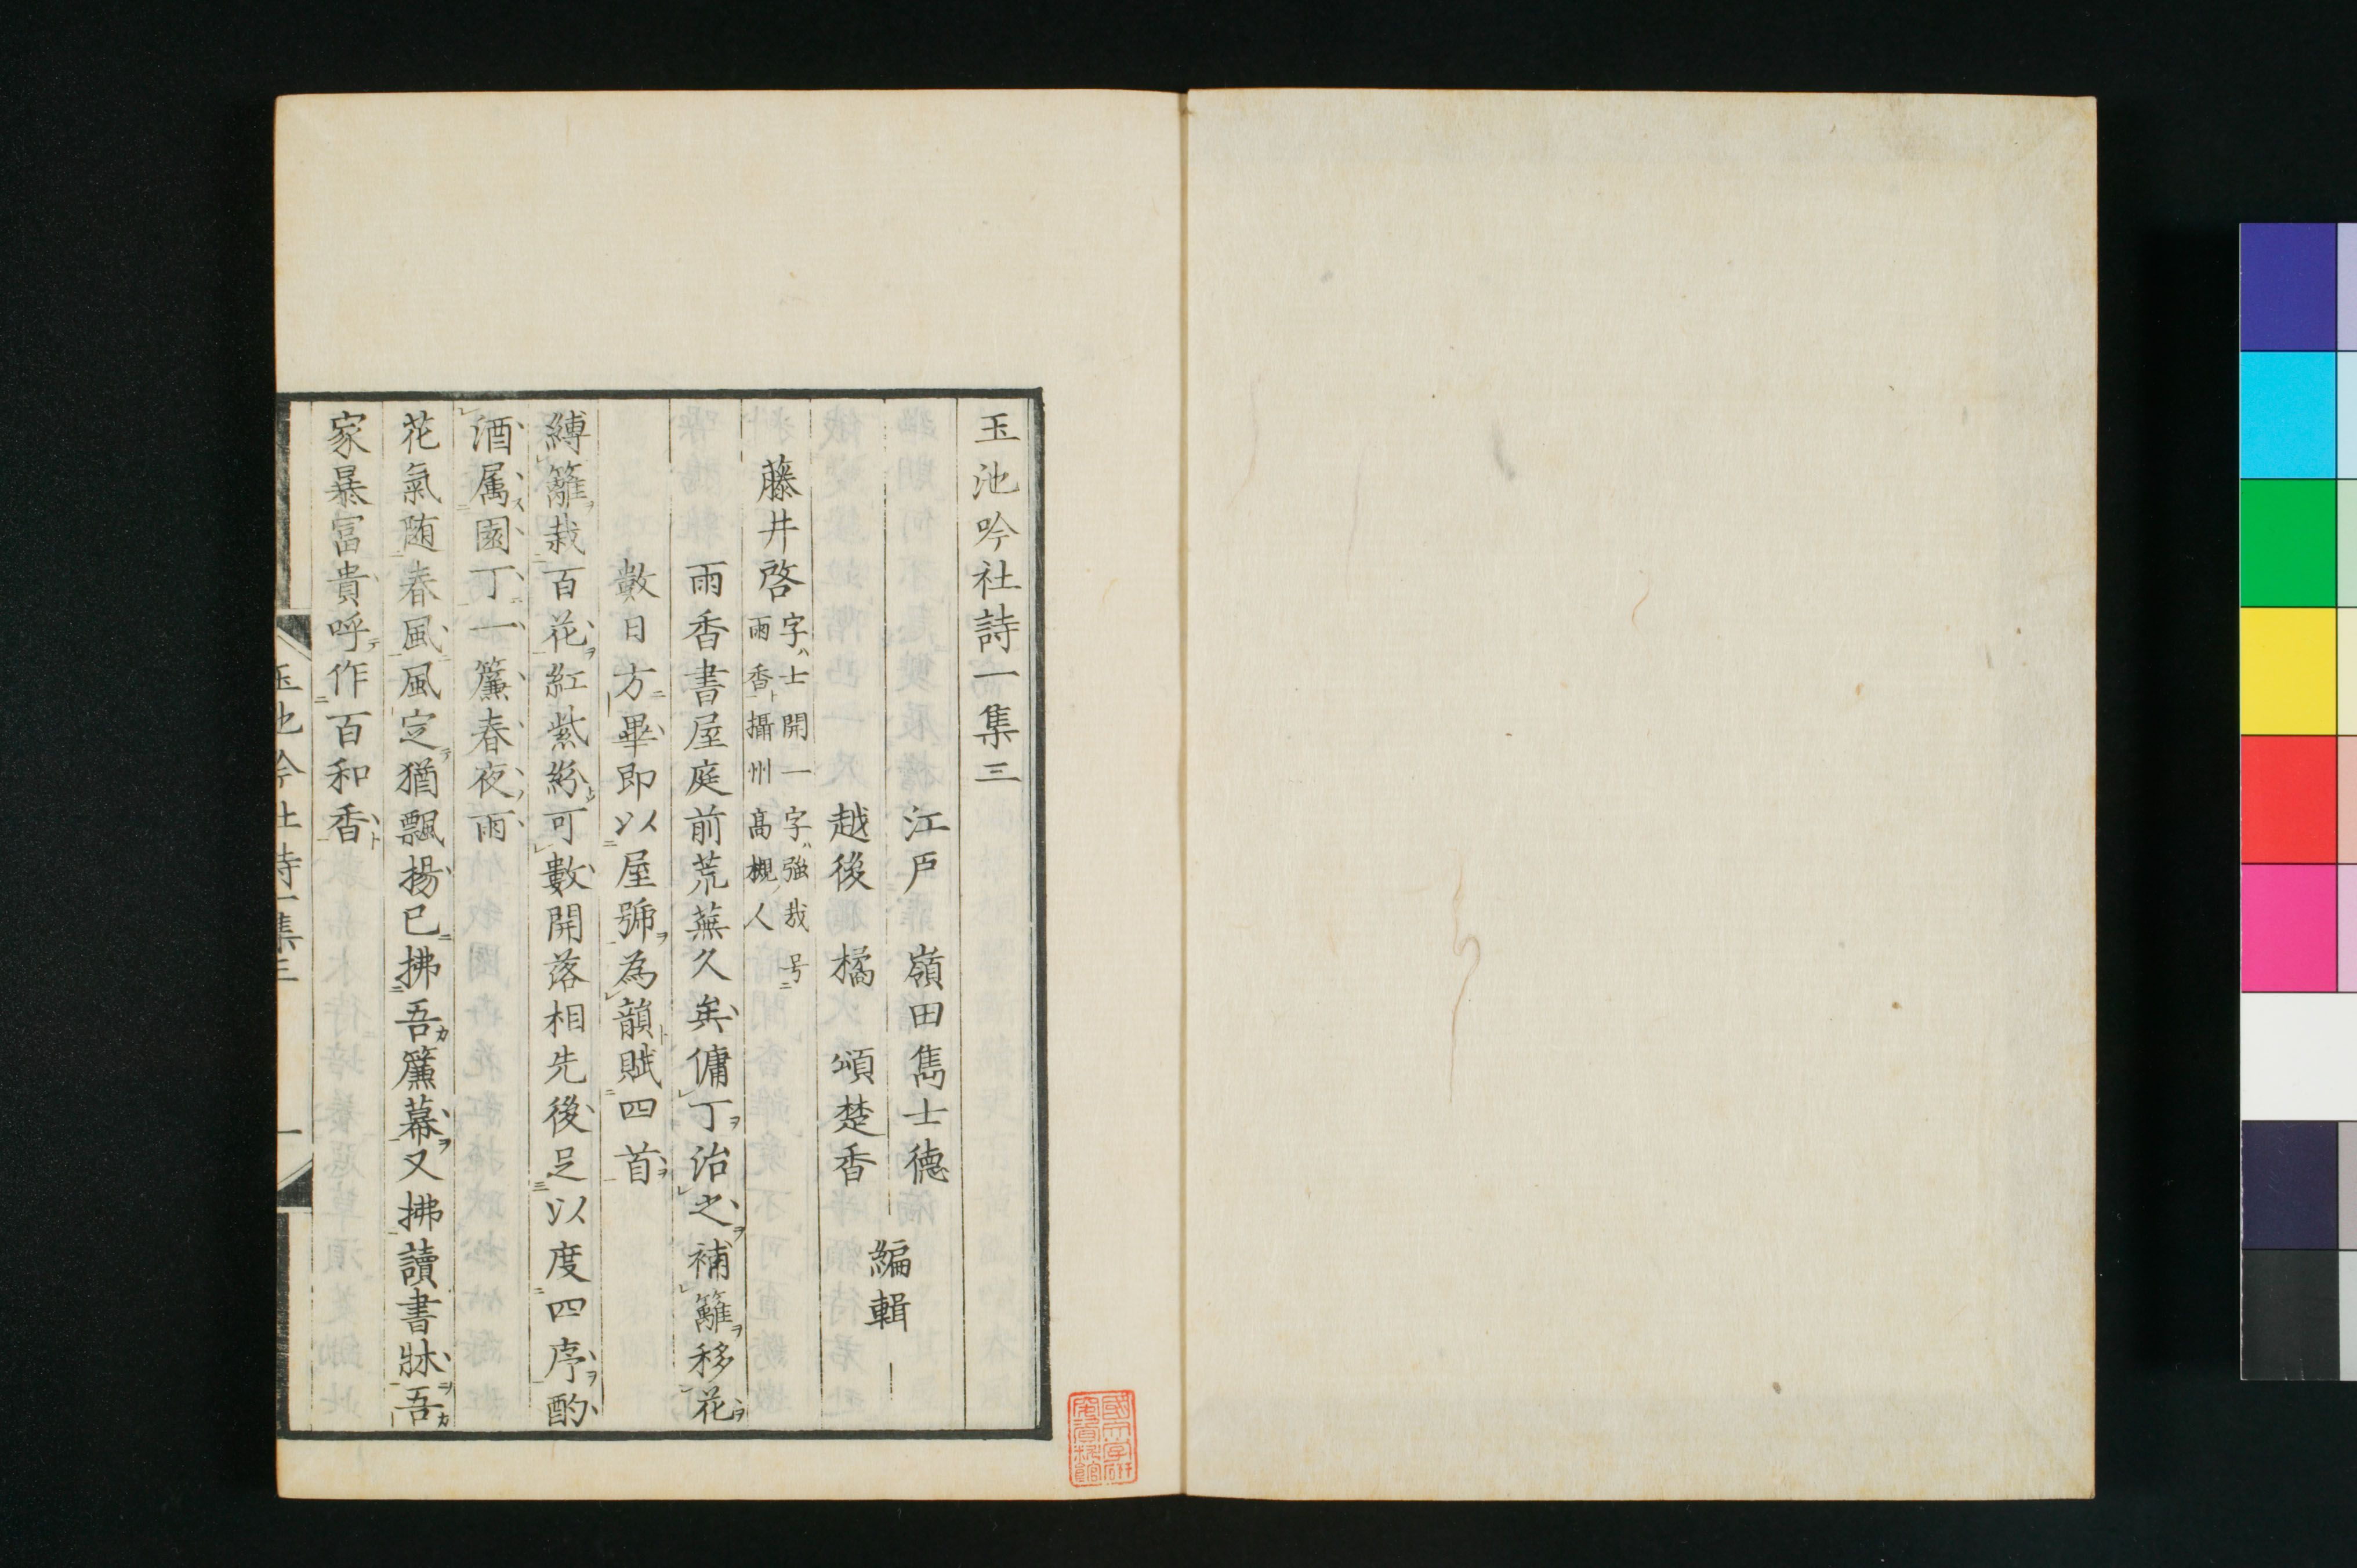 玉池吟社詩一集三
江戸　嶺田雋士德
越後　橘　頌楚香　編輯
藤井啓　字ハ士開一字ハ強哉号ニ雨香ト攝州高槻ノ人
雨香書屋庭前荒蕪久矣傭丁治之補籬移花
數日方畢即以屋號為韻賦四首
縛籬栽百花紅紫紛可數開落相先後足以度四序酌
酒属園丁一簾春夜雨
花氣随春風風定猶飄揚已拂吾簾幕又拂讀書牀吾
家暴富貴呼作百和香
玉池吟社詩一集三　一